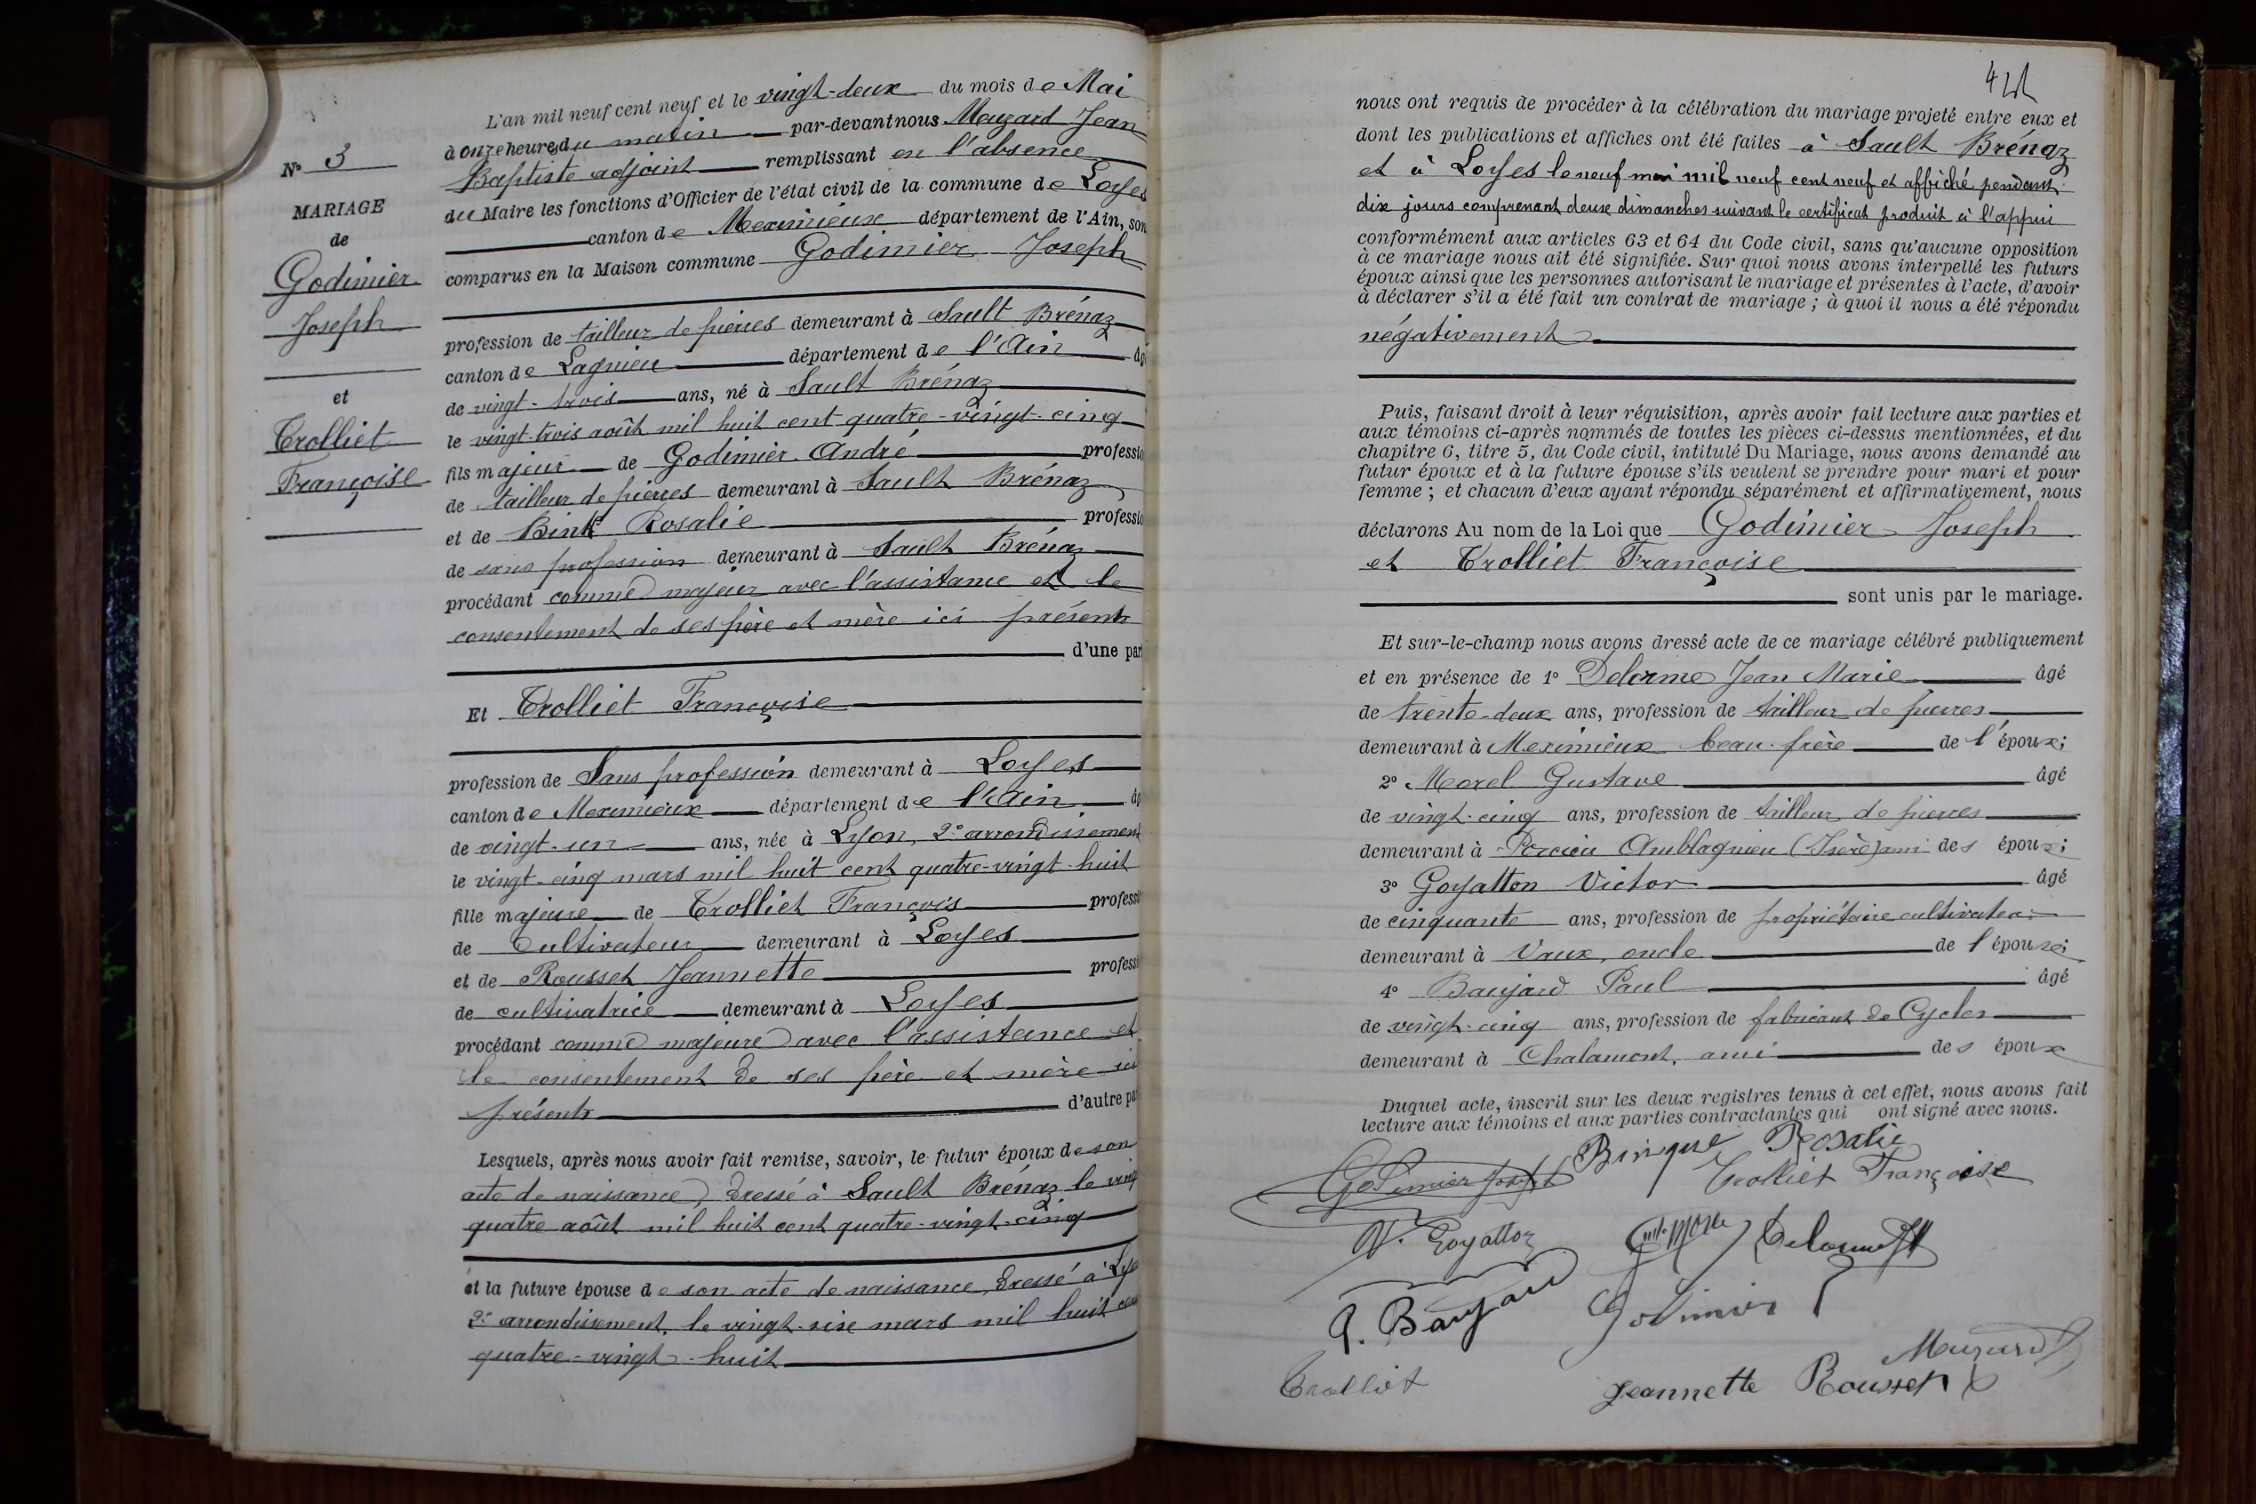 L'an mil neuf cent neuf et le vingt-deux du mois de Mai
à onze heures du matin par-devant nous Mazard Jean
Baptiste adjoint remplissant en l'absence
du Maire les fonctions d'Officier de l'état civil de la commune de Loyes
canton de Meximieux département de l'Ain, son
comparus en la Maison commune Godimier Joseph
profession de tailleur de pierres demeurant à Sault Brénaz
canton de Lagnieu département de l'Ain âg
de vingt-trois ans, né à Sault Brénaz
le vingt-trois août mil huit cent quatre-vingt-cinq
fils majeur de Godimier André professio
de tailleur de pierres demeurant à Sault Brénaz
et de Bink Rosalie professio
de sans profession demeurant à Sault Brénaz
procédant comme majeur avec l'assistance et le
consentement de ses père et mère ici présents
d'une par
Et Trolliet Françoise
profession de Sans profession demeurant à Loyes
canton de Meximieux département de l'Ain âg
de vingt-un ans, née à Lyon, 2e arrondissement
le vingt-cinq mars mil huit cent quatre-vingt-huit
fille majeure de Trolliet François professi
de Cultivateur demeurant à Loyes
et de Rousset Jeannette professi
de cultivatrice demeurant à Loyes
procédant comme majeure avec l'assistance et
le consentement de ses père et mère ici
présents d'autre pa
Lesquels, après nous avoir fait remise, savoir, le futur époux de son
acte de naissance, dressé à Sault Brénaz le vingt
quatre août mil huit cent quatre-vingt-cinq
et la future épouse de son acte de naissance, dressé à Lyo
2e arrondissement, le vingt-six mars mil huit cent
quatre-vingt-huit
N° 3
MARIAGE
de
Godimier
Joseph
et
Trolliet
Françoise
nous ont requis de procéder à la célébration du mariage projeté entre eux et
dont les publications et affiches ont été faites à Sault Brénaz
et à Loyes le neuf mai mil neuf cent neuf et affiché pendant
dix jours comprenant deux dimanches suivant le certificat produit à l'appui
conformément aux articles 63 et 64 du Code civil, sans qu'aucune opposition
à ce mariage nous ait été signifiée. Sur quoi nous avons interpellé les futurs
époux ainsi que les personnes autorisant le mariage et présentes à l'acte, d'avoir
à déclarer s'il a été fait un contrat de mariage ; à quoi il nous a été répondu
négativement
Puis, faisant droit à leur réquisition, après avoir fait lecture aux parties et
aux témoins ci-après nommés de toutes les pièces ci-dessus mentionnées, et du
chapitre 6, titre 5, du Code civil, intitulé Du Mariage, nous avons demandé au
futur époux et à la future épouse s'ils veulent se prendre pour mari et pour
femme ; et chacun d'eux ayant répondu séparément et affirmativement, nous
déclarons Au nom de la Loi que Godimier Joseph
et Trolliet Françoise
sont unis par le mariage.
Et sur-le-champ nous avons dressé acte de ce mariage célébré publiquement
et en présence de 1° Delorme Jean Marie âgé
de trente-deux ans, profession de tailleur de pierres
demeurant à Meximieux beau-frère de l'époux;
2° Morel Gustave âgé
de vingt-cinq ans, profession de tailleur de pierres
demeurant à Porcieu Amblagnieu (Isère) ami des époux;
3° Goyatton Victor âgé
de cinquante ans, profession de propriétaire cultivateur
demeurant à Vaux, oncle de l'épouse;
4° Baujard Paul âgé
de vingt-cinq ans, profession de fabricant de Cycles
demeurant à Chalamont, ami des époux
Duquel acte, inscrit sur les deux registres tenus à cet effet, nous avons fait
lecture aux témoins et aux parties contractantes qui ont signé avec nous.
Godimier Joseph Binque Rosalie
Trolliet Françoise
V. Goyatton Morel Delorme
P. Baujard Godimier
Mazard
Trolliet Jeannette Rousset